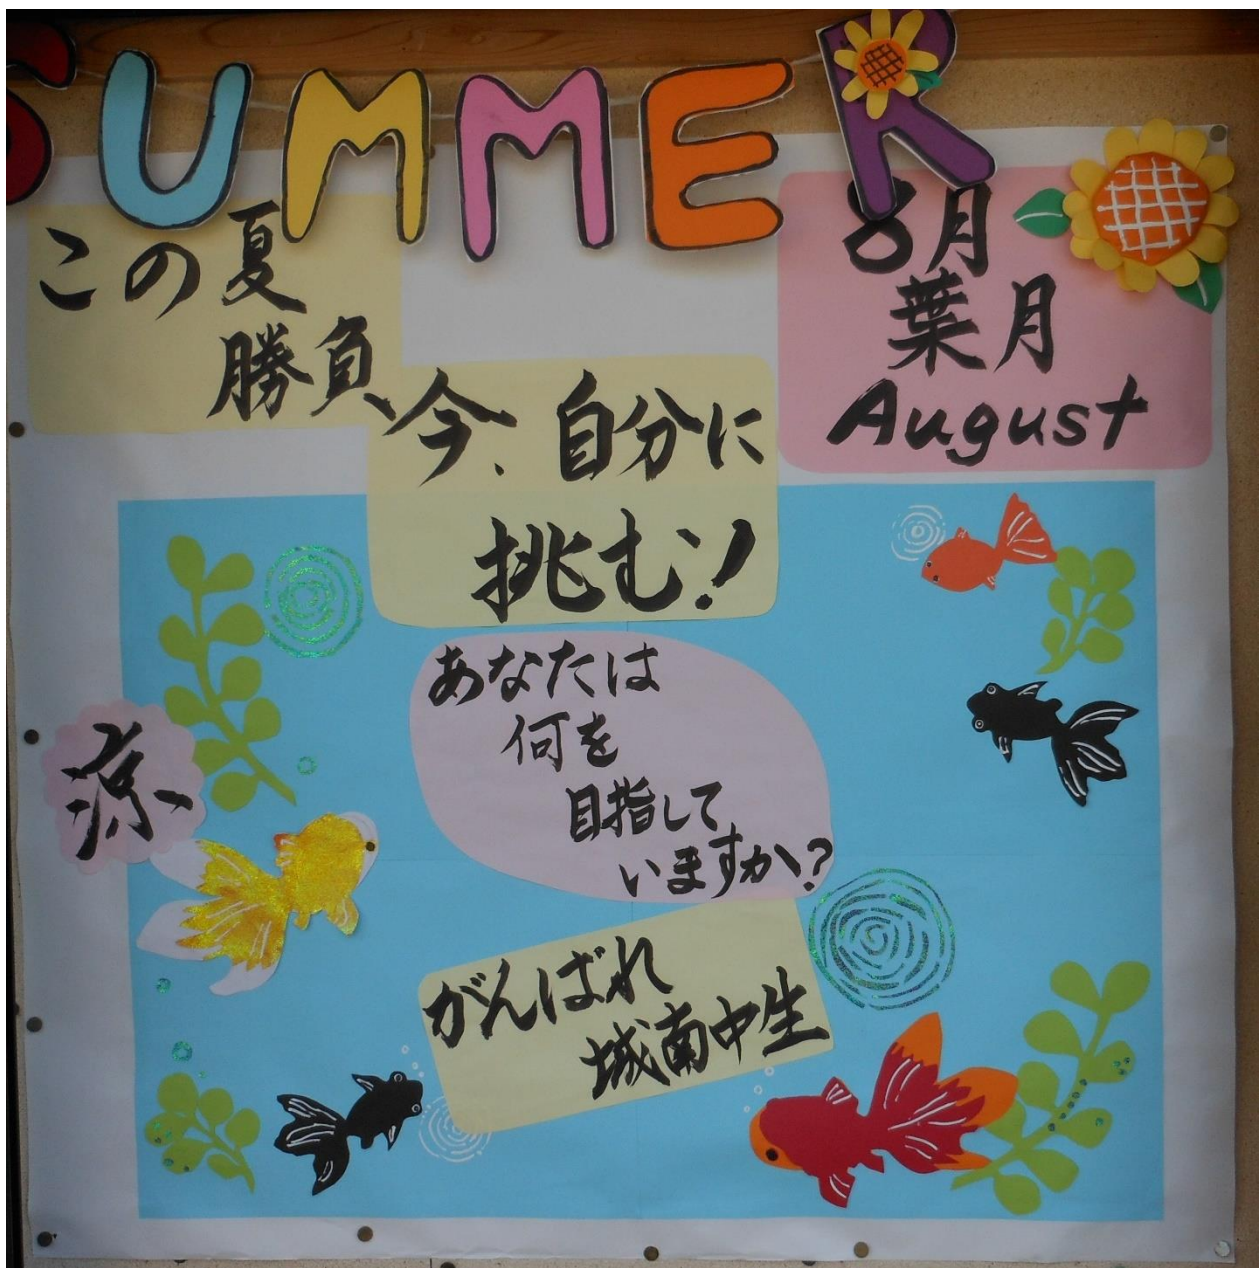 SUMMER
この夏
勝負
今、自分に
挑む！
8月
葉月
August
涼
あなたは
何を
目指して
いますか？
がんばれ
城南中生